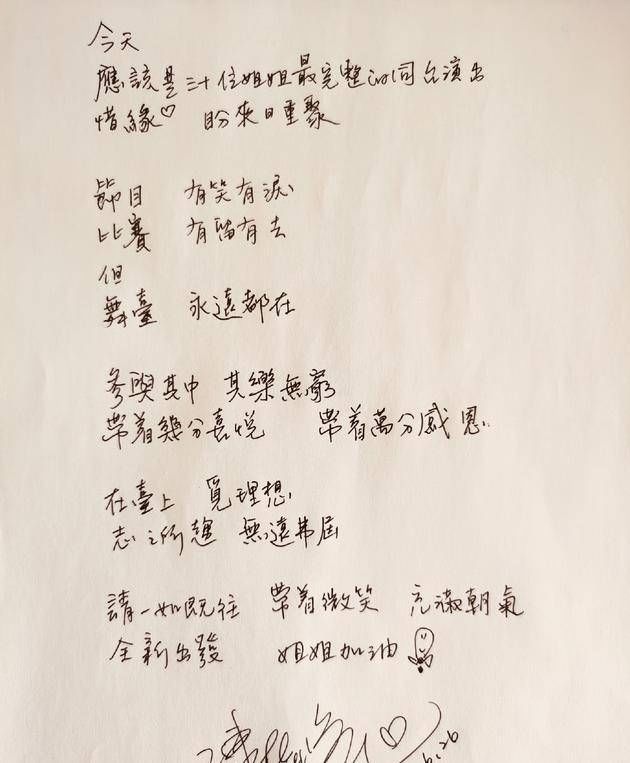 今天
應該是三十位姐姐最完整的同台演出
惜緣♡ 盼來日重聚
節目 有笑有淚
比賽 有留有去
但
舞臺 永遠都在
參與其中 其樂無窮
帶着幾分喜悅 帶着萬分感恩
在臺上 覓理想
志之所趨 無遠弗屆
請一如既往 帶着微笑 充滿朝氣
全新出發 姐姐加油
6.26